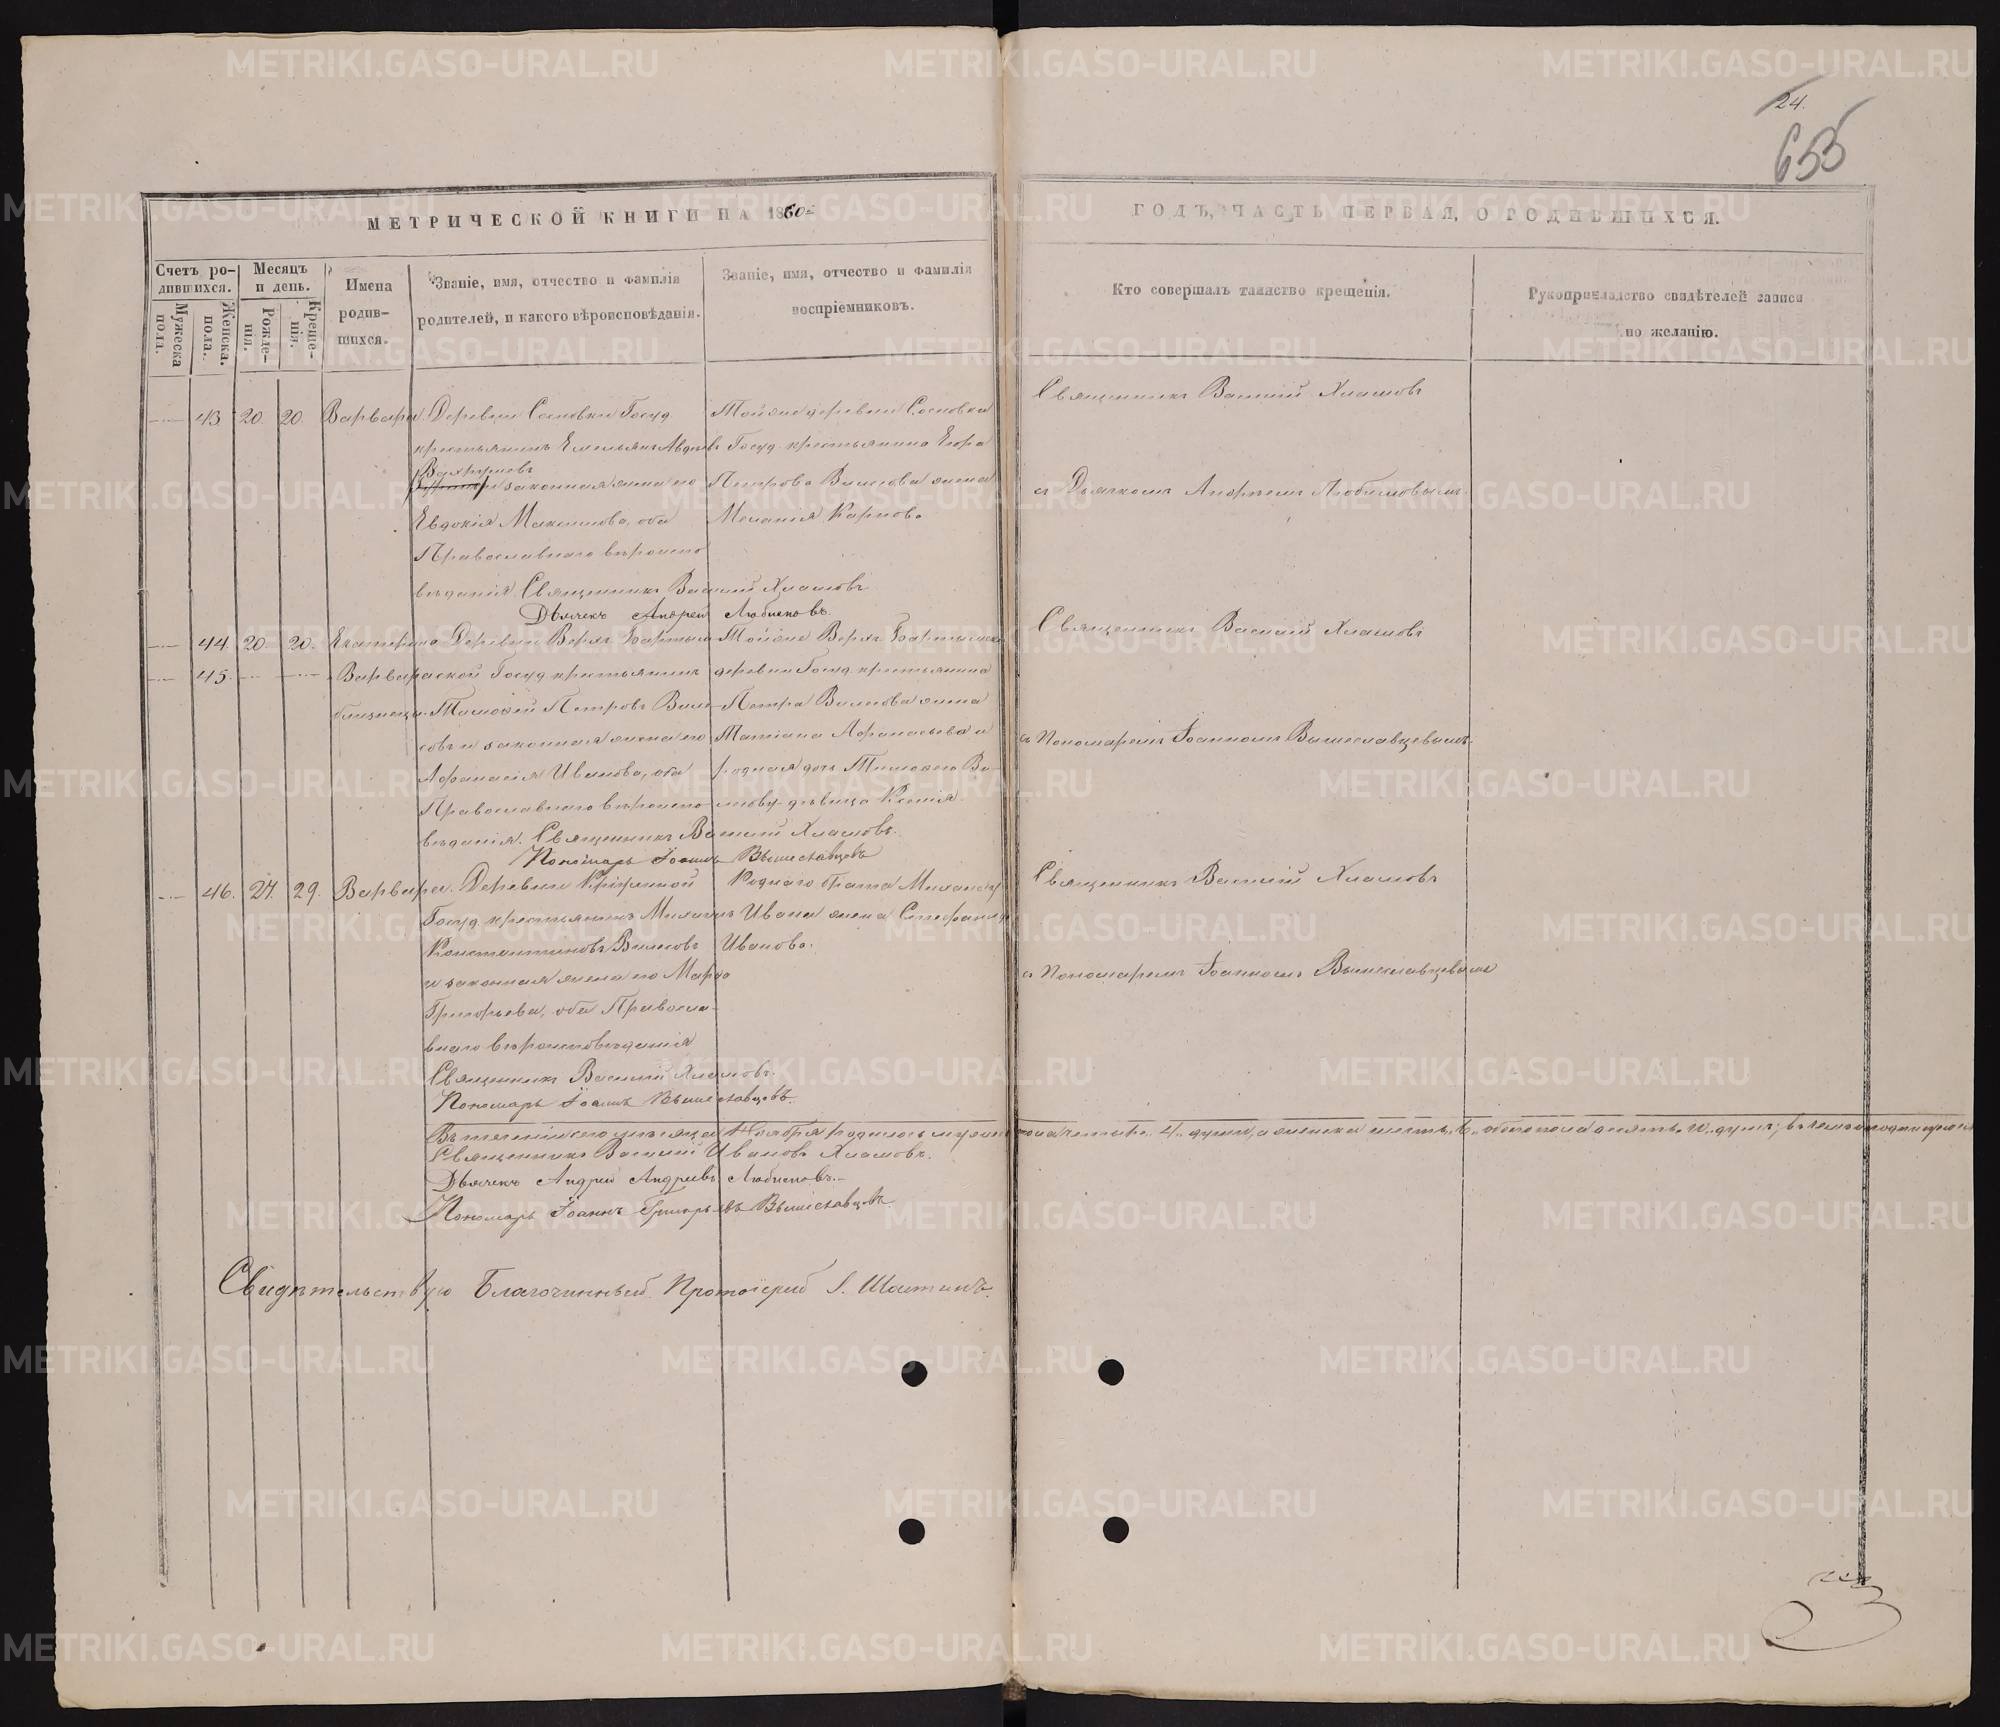 24.
635
МЕТРИЧЕСКОЙ КНИГИ НА 1860 ГОДЪ, ЧАСТЬ ПЕРВАЯ, О РОДИВШИХСЯ.
Счетъ родившихся.
Мужеска пола.
Женска. пола.
Месяцъ и день.
Рожденія.
Крещенія.
Имена родившихся.
Званіе, имя, отчество и фамилія
родителей, и какого вѣроисповѣданія.
Званіе, имя, отчество и фамилія
воспріемниковъ.
Кто совершалъ таинство крещенія.
Рукоприкладство свидѣтелей записи
по желанію.
43. 20. 20. Варвара.
Деревни Сосновки Госуд.
крестьянинъ Емельянъ Авдѣевъ
Вахрушевъ
и законная жена его
Евдокія Максимова, оба
Православнаго вѣроиспо
вѣданія Священникъ Василій Хламовъ
Дьячекъ Андрей Любимовъ.
Тойже деревни Сосновки
Госуд. крестьянина Егора
Петрова Вилесова жена
Меланія Карпова
Священникъ Василій Хламовъ
съ Дьячкомъ Андреемъ Любимовымъ.
44. 20. 20. Екатерина
45. Варвара
близнецы.
Деревни Верхъ Бартым
ской Госуд. крестьянинъ
Тимоѳей Петровъ Виле
совъ и законная жена его
Афанасія Иванова, оба
Православнаго вѣроиспо
вѣданія. Священникъ Василій Хламовъ.
Пономарь Іоаннъ Вышеславцевъ
Тойже Верхъ Бартымской
деревни Госуд. крестьянина
Петра Вилесова жена
Татіана Афанасьева и
родная дочь Тимоѳею Ви
лесову дѣвица Ксенія
Священникъ Василій Хламовъ
съ Пономаремъ Іоанномъ Вышеславцевымъ.
46. 27. 29. Варвара.
Деревни
Госуд. крестьянинъ Михаилъ
Константиновъ Вилесовъ
и законная жена его Марѳа
Григорьева, оба Правосла
внаго вѣроисповѣданія
Священникъ Василій Хламовъ.
Пономарь Іоаннъ Вышеславцевъ.
Роднаго брата Михаилу
Ивана жена Стефанида
Иванова.
Священникъ Василій Хламовъ
съ Пономаремъ Іоанномъ Вышеславцевымъ
Въ теченіи сего мѣсяца Ноября родилось мужеска пола четыре 4. души, а женска шесть 6. обоего пола десять 10. душъ; въ чемъ и подписуемся
Священникъ Василій Ивановъ Хламовъ.
Дьячекъ Андрей Андреевъ Любимовъ.
Пономарь Іоаннъ Григорьевъ Вышеславцевъ
Свидѣтельствую Благочинный Протоіерей І. Шастинъ.
METRIKI.GASO-URAL.RU